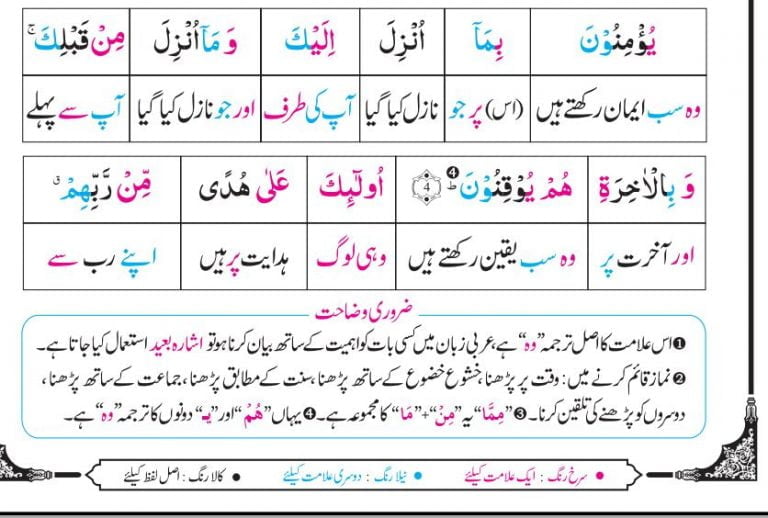 يُؤْمِنُوْنَ بِمَآ اُنْزِلَ اِلَيْكَ وَ مَآ اُنْزِلَ مِنْ قَبْلِكَ ۚ
وہ سب ایمان رکھتے ہیں (اس) پر جو نازل کیا گیا آپ کی طرف اور جو نازل کیا گیا آپ سے پہلے
وَ بِالْاٰخِرَةِ هُمْ يُوْقِنُوْنَ ؕ❹ 4 اُولٰٓئِكَ عَلٰى هُدًى مِّنْ رَّبِّهِمْ ۗ
اور آخرت پر وہ سب یقین رکھتے ہیں وہی لوگ ہدایت پر ہیں اپنے رب سے
ضروری وضاحت
❶ اس علامت کا اصل ترجمہ "وہ" ہے، عربی زبان میں کسی بات کو اہمیت کے ساتھ بیان کرنا ہو تو اشارہ بعید استعمال کیا جاتا ہے۔
❷ نماز قائم کرنے میں: وقت پر پڑھنا، خشوع خضوع کے ساتھ پڑھنا، سنت کے مطابق پڑھنا، جماعت کے ساتھ پڑھنا،
دوسروں کو پڑھنے کی تلقین کرنا۔ ❸ "مِمَّا" یہ "مِنْ"+"مَا" کا مجموعہ ہے۔ ❹ یہاں "هُمْ" اور "يـ" دونوں کا ترجمہ "وہ" ہے۔
● سرخ رنگ : ایک علامت کیلئے ● نیلا رنگ : دوسری علامت کیلئے ● کالا رنگ : اصل لفظ کیلئے